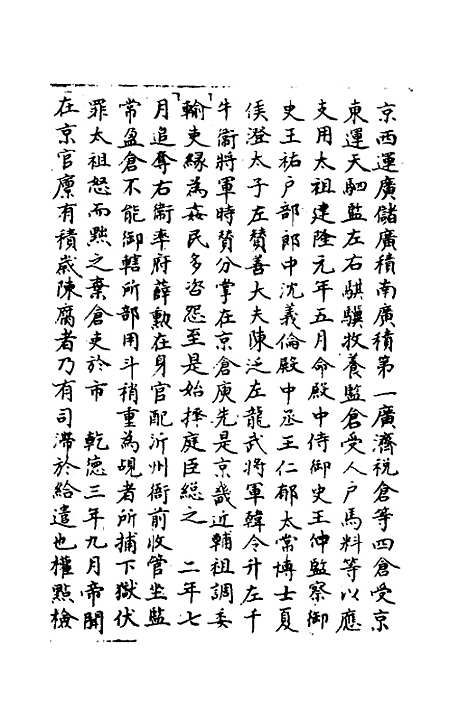 京西運廣儲廣積南廣積第一廣濟稅倉等四倉受京
東運天駟監左右騏驥牧養監倉受人户馬料等以應
支用太祖建隆元年五月命殿中侍御史王仲監察御
史王祐户部郎中沈義倫殿中丞王仁郁太常博士夏
侯澄太子左贊善大夫陳泛左龍武將軍韓令升左千
牛衞將軍時贊分掌在京倉庾先是京畿近輔租調委
輸吏緣為姦民多咨怨至是始擇庭臣總之 二年七
月追奪右衞率府薛勲在身官配沂州衙前收管坐監
常盈倉不能御轄所部用斗稍重為覘者所捕下獄伏
罪太祖怒而黜之棄倉吏於市 乾德三年九月帝聞
在京官廪有積歲陳腐者乃有司滯於給遣也權點檢